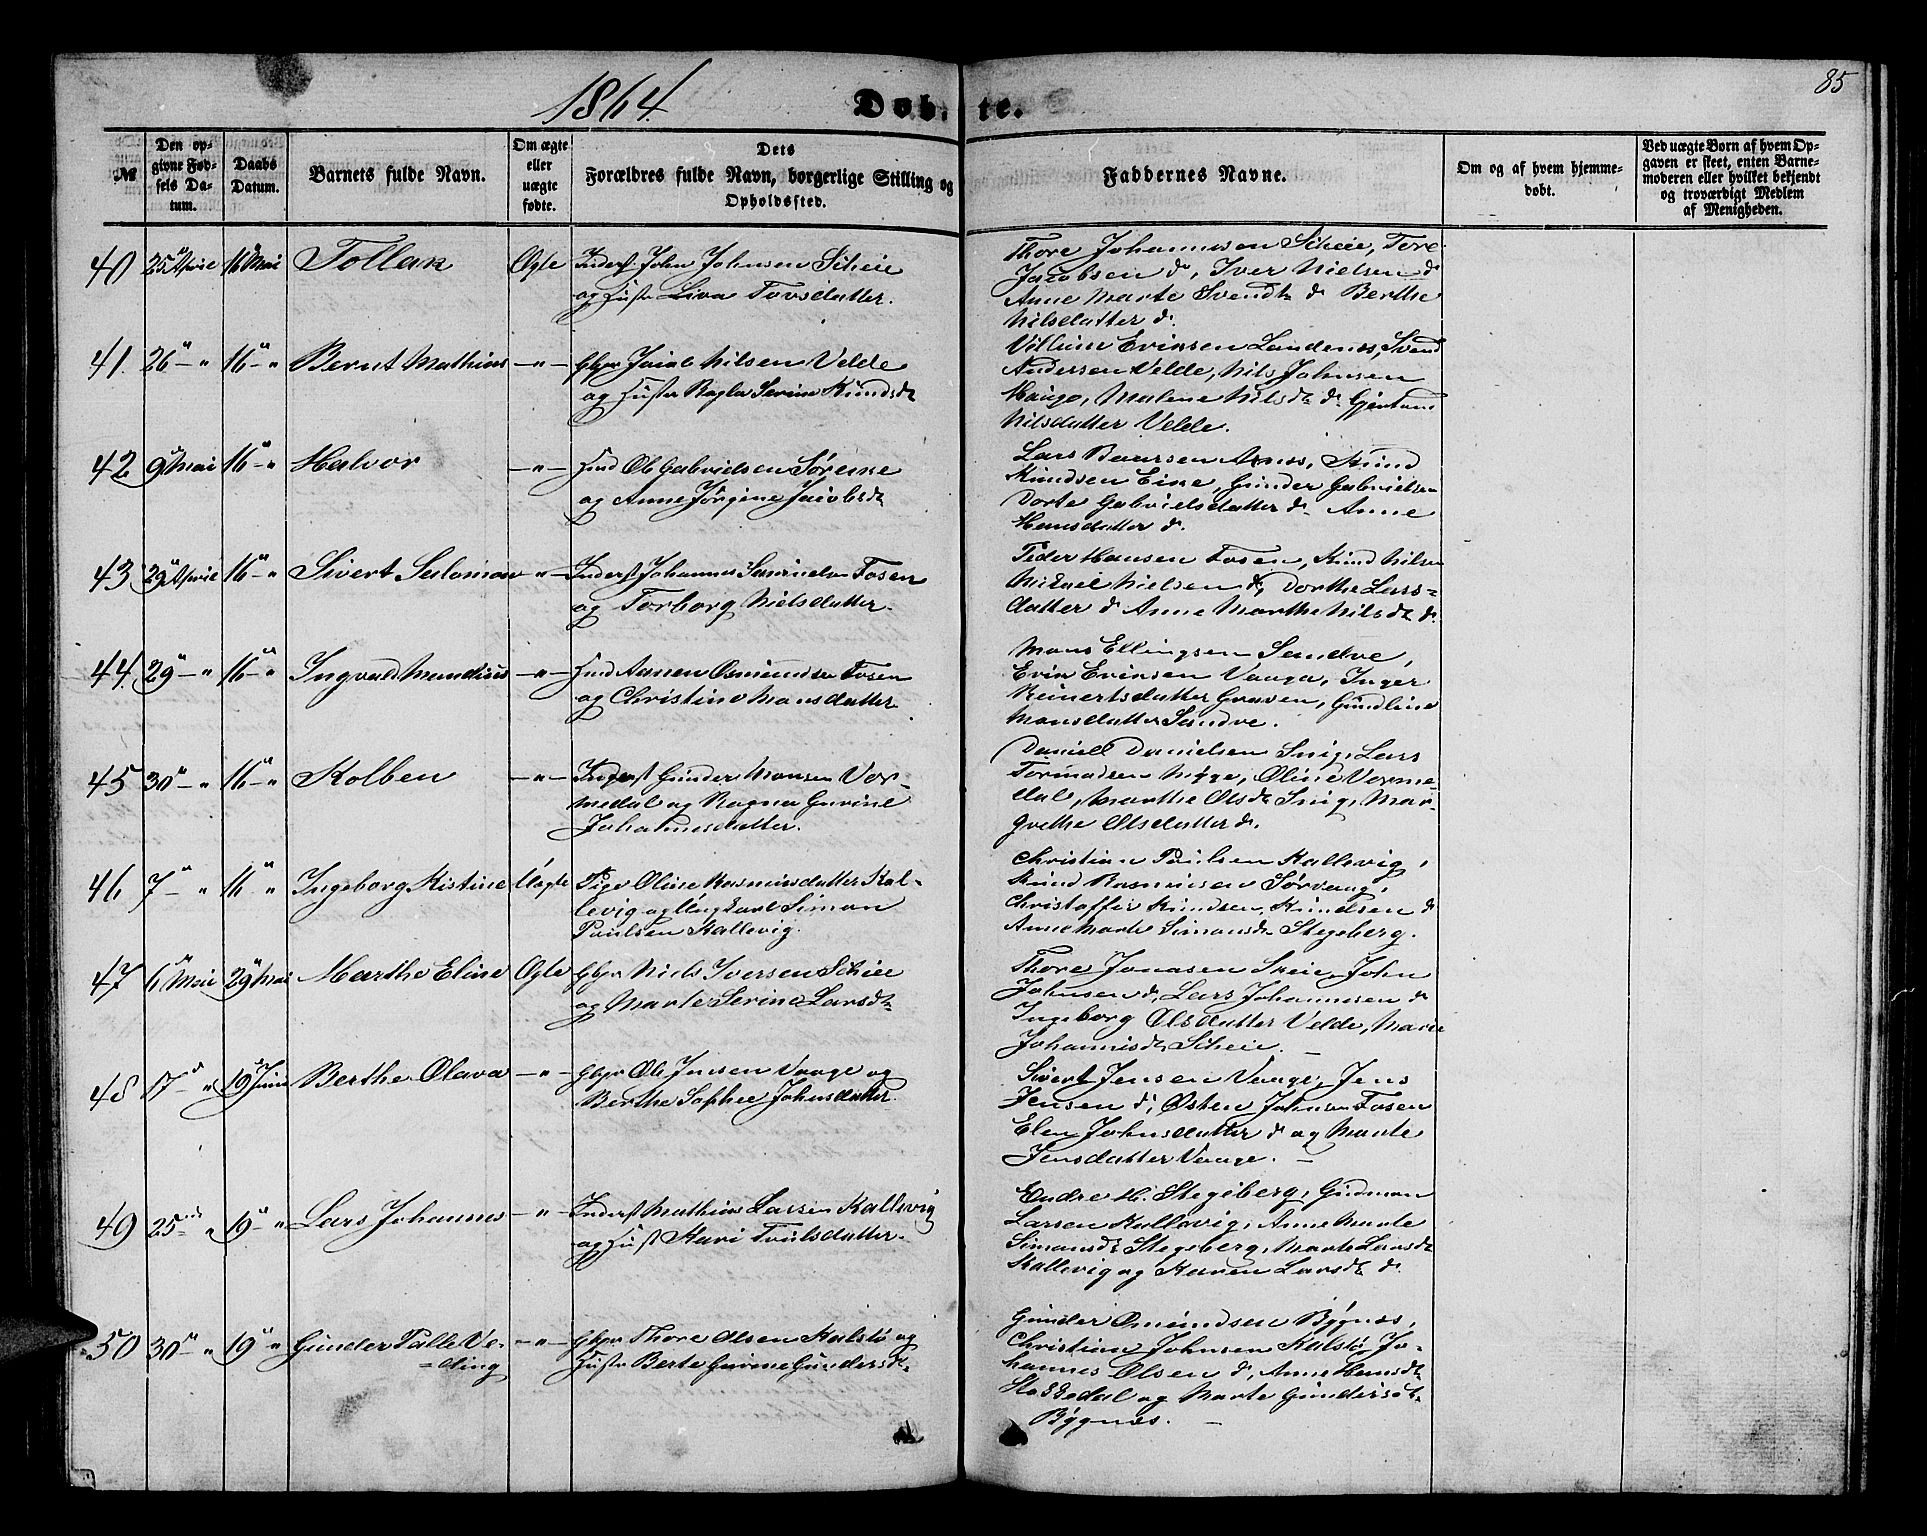 1864.
Døbte.
85
№
Den op-
givne Fød-
sels Da-
tum.
Daabs
Datum.
Barnets fulde Navn.
Om ægte
eller
uægte
fødte.
Dets
Forældres fulde Navn, borgerlige Stilling og
Opholdssted.
Faddernes Navne.
Om og af hvem hjemme-
døbt.
Ved uægte Børn af hvem Op-
gaven er skeet, enten Barne-
moderen eller hvilket bekjendt
og troværdigt Medlem
af Menigheden.
40 25 April 16 Mai Tollak Ægte Inderst John Johnsen Scheie
og Hustr Liva Tovsdatter.
Thore Johannesen Scheie, Tore
Jacobsen do, Iver Nielsen do
Anne Marte Svendsdt do Berthe
Nilsdatter do.
41. 26 - " 16 - " Bernt Mathias - " - Gbgr Jacob Nilsen Velde
og Hustr Ragla Serine Knudsdt
Villum Ericsen Landenæs, Svend
Andersen Velde, Nils Johnsen
Hauge, Malene Nilsdt do
Nilsdatter Velde.
42 9 Mai 16 - " Halvor - " - Hmd Ole Gabrielsen Sørenne
og Anne Jørgine Jacobsdt
Lars Baarsen, Knud
Knudsen Eine, Gunder Gabrielsen
Dorte Gabrielsdatter do Anne
Hansdatter do.
43 29 April 16 - " Sivert Salomon - " - Inderst Johannes Fosen
og Torborg Nielsdatter.
Peder Hansen Fosen, Knud Nilsen
Mickael Nielsen do, Dorthe Lars-
datter do Anne Marthe Nilsdt do.
44. 29 - " 16 - " Ingvald Mandius - " - Hmd Aanen Osmundsen Fosen
og Christine Mansdatter
Mons Ellingsen Sandve,
Erik Ericsen Vaaga, Inger
Reinertsdatter Graven, Gundline
Monsdatter Sandve.
45 30 - " 16 - " Kolben - " - Inderst Gunder Monsen Vor-
medal og Ragna Gurine
Johannesdatter.
Daniell Danielsen Snig, Lars
Tormodsen Nygge, Oline Vorme-
dal, Marthe Olsdt Snig, Mar-
grethe Olsdatter do.
46 7 - " 16 " Ingeborg Kistine Uægte Pige Oline Rasmusdatter Kal-
levig og Ungkarl Simon
Poulsen Kallevig.
Christian Poulsen Kallevig,
Knud Rasmusen Sørvaag,
Christoffer Knudsen, Knudsen do
Anne Marte Simonsdt Stegeberg.
47 6 Mai 29 Mai Marthe Eline Ægte Gbgr Niels Iversen Schiee
og Marte Serine Larsdt
Thore Jonasen Skeie, John
Johnsen do, Lars Johannesen do
Ingeborg Olsdatter Velde, Marie
Johannisdt Scheie.
48 17 - " 19 Juni Berthe Olava - " - Gbgr Ole Jensen Vaage og
Berthe Sophie Johnsdatter.
Sivert Jensen Vaage, Jens
Jensen do, Østen Johnsen Fosen
Elen Johnsdatter do og Marte
Jensdatter Vaage.
49 25 " 19 - " Lars Johannes - " - Inderst Mathias Larsen Kallevig
og Hust Kari Troulsdatter.
Endre H. Stegeberg, Gudmon
Larsen Kallevig, Anne Marte
Simonsdt Stegeberg, Marte Larsdt
Kallevig og Karen Larsdt do.
50 30 - " 19 " Gunder Palle Ve-
ding - " - Gbgr Thore Olsen Kalstø og
Hustr Berte Gurine Gundersdt.
Gunder Omundsen Bygnæs,
Christian Johnsen Kalstø, Jo-
hannes Olsen do, Anne Hansdt
Stokkedal og Marte Gundersdt.
Bygnæs.